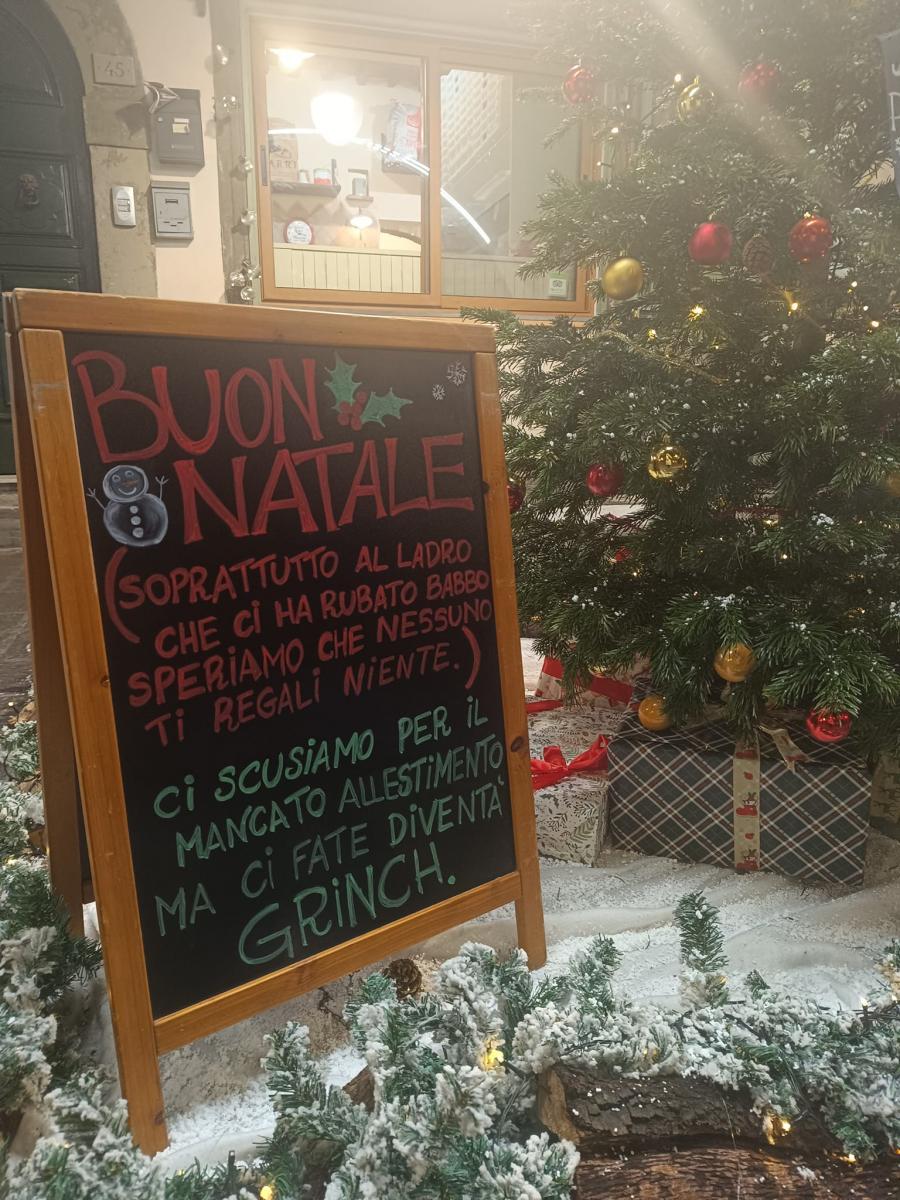 45
BUON
NATALE
(SOPRATTUTTO AL LADRO
CHE CI HA RUBATO BABBO
SPERIAMO CHE NESSUNO
TI REGALI NIENTE.)
CI SCUSIAMO PER IL
MANCATO ALLESTIMENTO
MA CI FATE DIVENTA'
GRINCH.